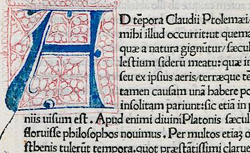 AD tēpora Claudii Ptolemæi
mihi illud occurritut quema
quæ a natura gignūtur/ sæcul
lestium sideri meatu: quæ in
seu ex ipsius aeris/terræque te
tamen causam unā habere po
insolitam pariunt:sic etiā in p
niis uisum est. Apud enimi diuini Platonis sæcul
floruisse philosophos nouimus. Per multos etiā o
sthenis tulerūt tempora, quot præstātissimi clarusi